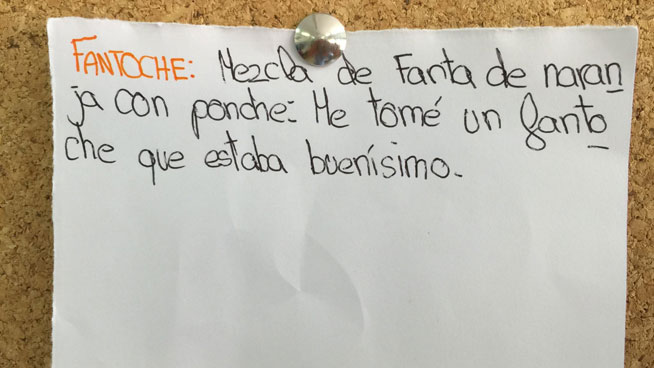 FANTOCHE: Mezcla de Fanta de naran
ja con ponche: Me tomé un fanto
che que estaba buenísimo.